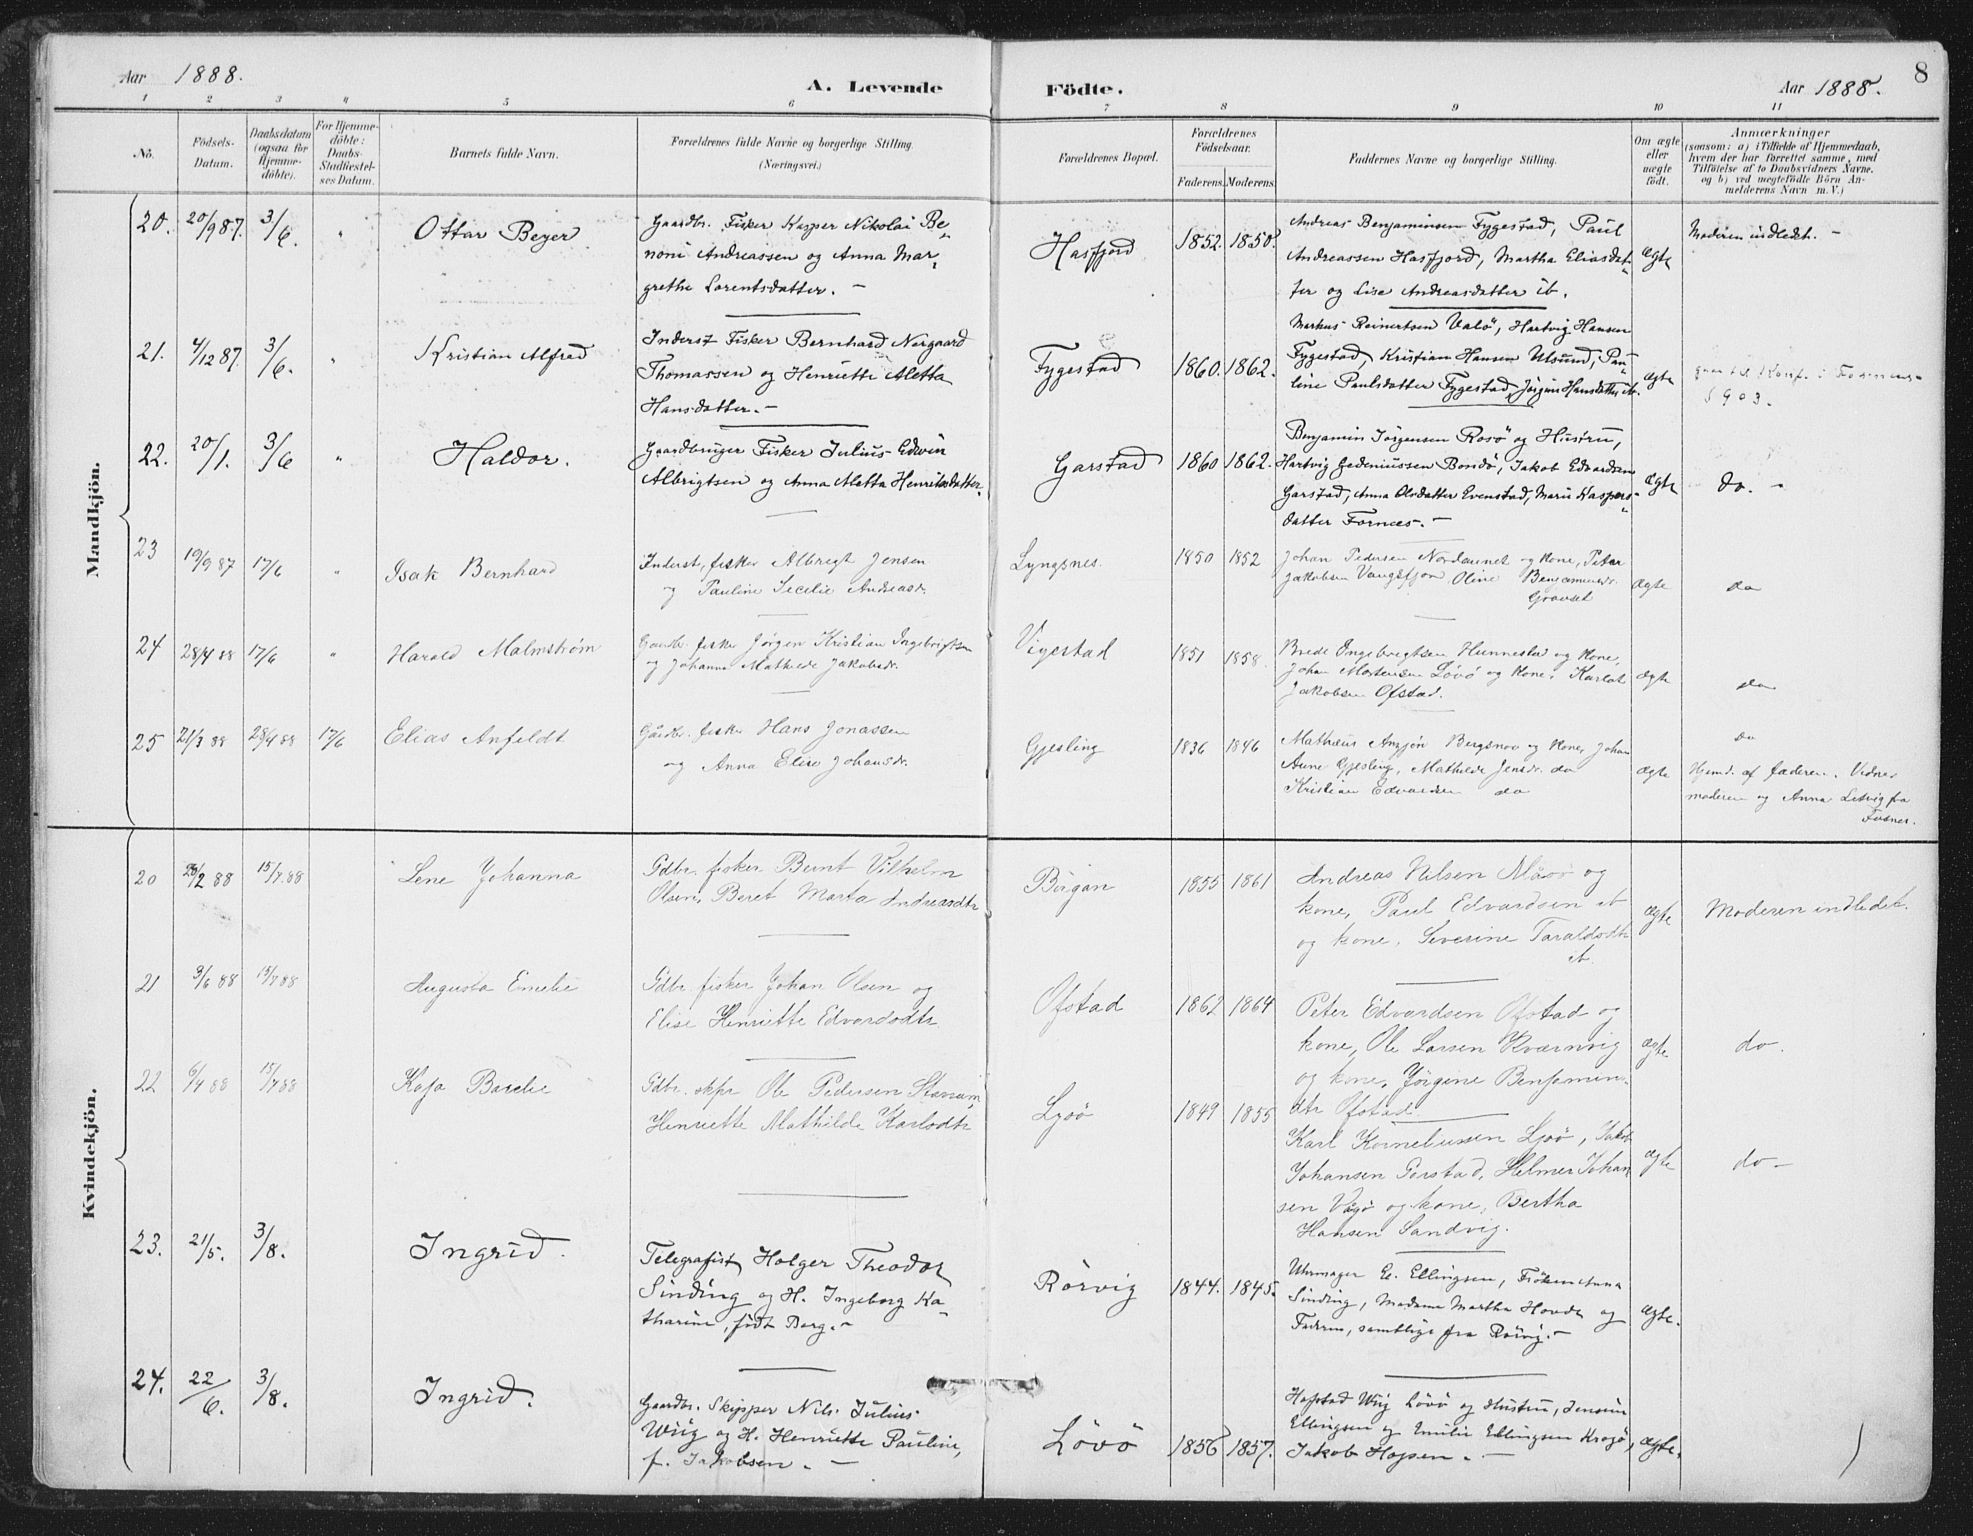 8
Aar 1888.
A. Levende Födte.
Aar 1888.
1 2 3 4 5 6 7 8 9 10 11
No.
Födsels-
Datum.
Daabsdatum
(ogsaa for
Hjemme-
döbte).
For Hjemme-
döbte:
Daabs-
Stadfæstel-
ses Datum.
Barnets fulde Navn.
Forældrenes fulde Navne og borgerlige Stilling.
(Næringsvei.)
Forældrenes Bopæl.
Forældrenes
Födselsaar.
Faderens. Moderens.
Faddernes Navne og borgerlige Stilling.
Om ægte
eller
uægte
födt.
Anmærkninger
(saasom: a) i Tilfælde af Hjemmedaab,
hvem der har forrettet samme, med
Tilföielse af to Daabsvidners Navne.
og b) ved uægtefödte Börn An-
melderens Navn m. V.)
Mandkjön.
20. 20/9 87. 3/6. " Ottar Beyer
Gaardbr. Fisker Kasper Nikolai Be-
noni Andreassen og Anna Mar-
grethe Lorentsdatter. —
Hasfjord 1852. 1850.
Andreas Benjaminsen Fygestad, Paul
Andreassen Hasfjord, Martha Eliasdat-
ter og Lise Andreasdatter ib.
ægte
Moderen indledet. —
21. 4/12 87. 3/6. " Kristian Alfred
Inderst Fisker Bernhard Norgaard
Thomassen og Henriette Aletta
Hansdatter. —
Fygestad 1860. 1862.
Markus Reinertsen Valö, Hartvig Hansen
Fygestad, Kristian Hansen Utsund, Pau-
line Paulsdatter Fygestad, Jörgine Hansdatter ib.
ægte
22. 20/1. 3/6 " Haldor.
Gaardbruger Fisker Julius Edvin
Albrigtsen og Anna Matta Henriksdatter
Garstad 1860 1862.
Benjamin Jörgensen Rosö og Hustru,
Hartvig Gedeniussen Bondö, Jakob Edvardsen
Garstad, Anna Olsdatter Evenstad, Marie Kaspers-
datter Fornæs. —
ægte
do. -
23 19/9 87 17/6 " Isak Bernhard
Inderst, fisker Albregt Jensen
og Pauline Cecilie Andreasdr.
Lyngsnes. 1850 1852
Johan Pedersen Nordaunet og Kone, Peter
Jakobsen Vangsfjor, Oline Benjaminsdr.
Gravset
ægte
do
24 28/4 88 17/6 " Harald Malmstrøm
Gaardbr. fisker Jörgen Kristian Ingebrigtsen
og Johanna Mathilde Jakobsdr.
Vigestad 1851 1858.
Brede Ingebregtsen Hunnestad og Kone,
Johan Mortensen Lövö og Kone, Karlot
Jakobsen Ofstad.
ægte
do
25 21/3 88 28/4 88 17/6 Elias Anfeldt
Gårdbr. fisker Hans Jonassen
og Anna Elise Johansdr.
Gjesling 1836 1846
Mathæus Anzjön Bergsnov og Kone, Johan
Aune Gjesling, Mathilde Jensdr. do
Kristian Edvardsen do
ægte
do
Hjemd. af faderen. Vidner
moderen og Anna Letvig fra
Fosnes.
Kvindekjön.
20 /2 88 15/7 88 Lene Johanna
Gdbr. fisker Bernt Vilhelm
Olsen, Beret Marta Andreasdtr
Börgan 1855 1861
Andreas Nilsen og
kone, Paul Edvardsen ib
og kone, Severine Taraldsdtr
ib.
ægte
Moderen indledet.
21 3/6 88 15/7 88 Augusta Emelie
Gdbr. fisker Johan Olsen og
Elise Henriette Edvardsdtr.
Ofstad 1862 1864
Peter Edvardsen Ofstad og
kone, Ole Larsen Kværnvig
og kone, Jørgine Benjamin-
dtr Ofstad.
ægte
do.
22 6/4 88 15/7 88 Kaja Bardie
Gdbr. skpr Ole Pedersen
Henriette Mathilde Karlsdtr
Lysö 1849 1855
Karl Korneliussen Lysö, Jakob
Johansen Gorstad, Helmer Johan-
sen Vågö og kone, Bertha
Hansen Sandvig.
ægte
do -
23. 21/5. 3/8. Ingrid.
Telegrafist Holger Theodor
Sinding og H. Ingeborg Ka-
tharine, födt Borg. —
Rörvig 1844. 1845.
Uhrmager E. Ellingsen, Fröken Anna
Sinding, Madame Martha Hovde og
Faderen, samtlige fra Rörvig. —
ægte.
24. 22/6. 3/8. Ingrid.
Gaardbr. Skipper Nils Julius
Wiig og H. Henriette Pauline,
f. Jakobsen. —
Lövö 1856 1857.
Hofstad Wiig Lövö og Hustru, Jensine
Ellingsen og Emilie Ellingsen Krogö,
Jakob Hopsen. —
ægte.